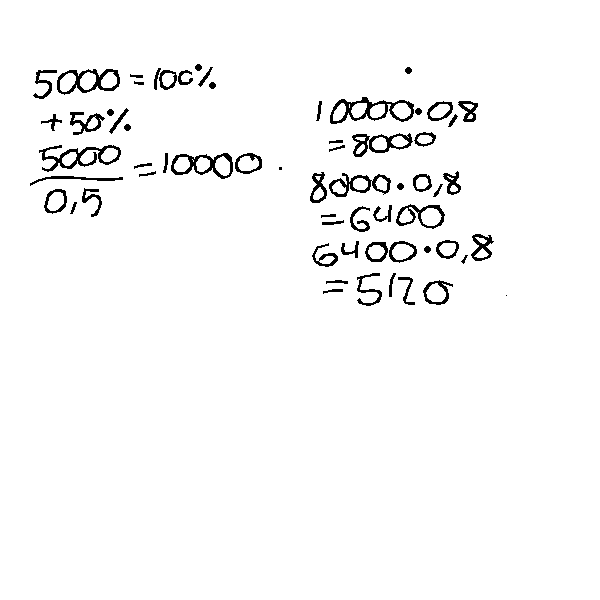 5000 = 100%
+50%
5000
0,5
= 10000
10000 · 0,8
= 8000
8000 · 0,8
= 6400
6400 · 0,8
= 5120